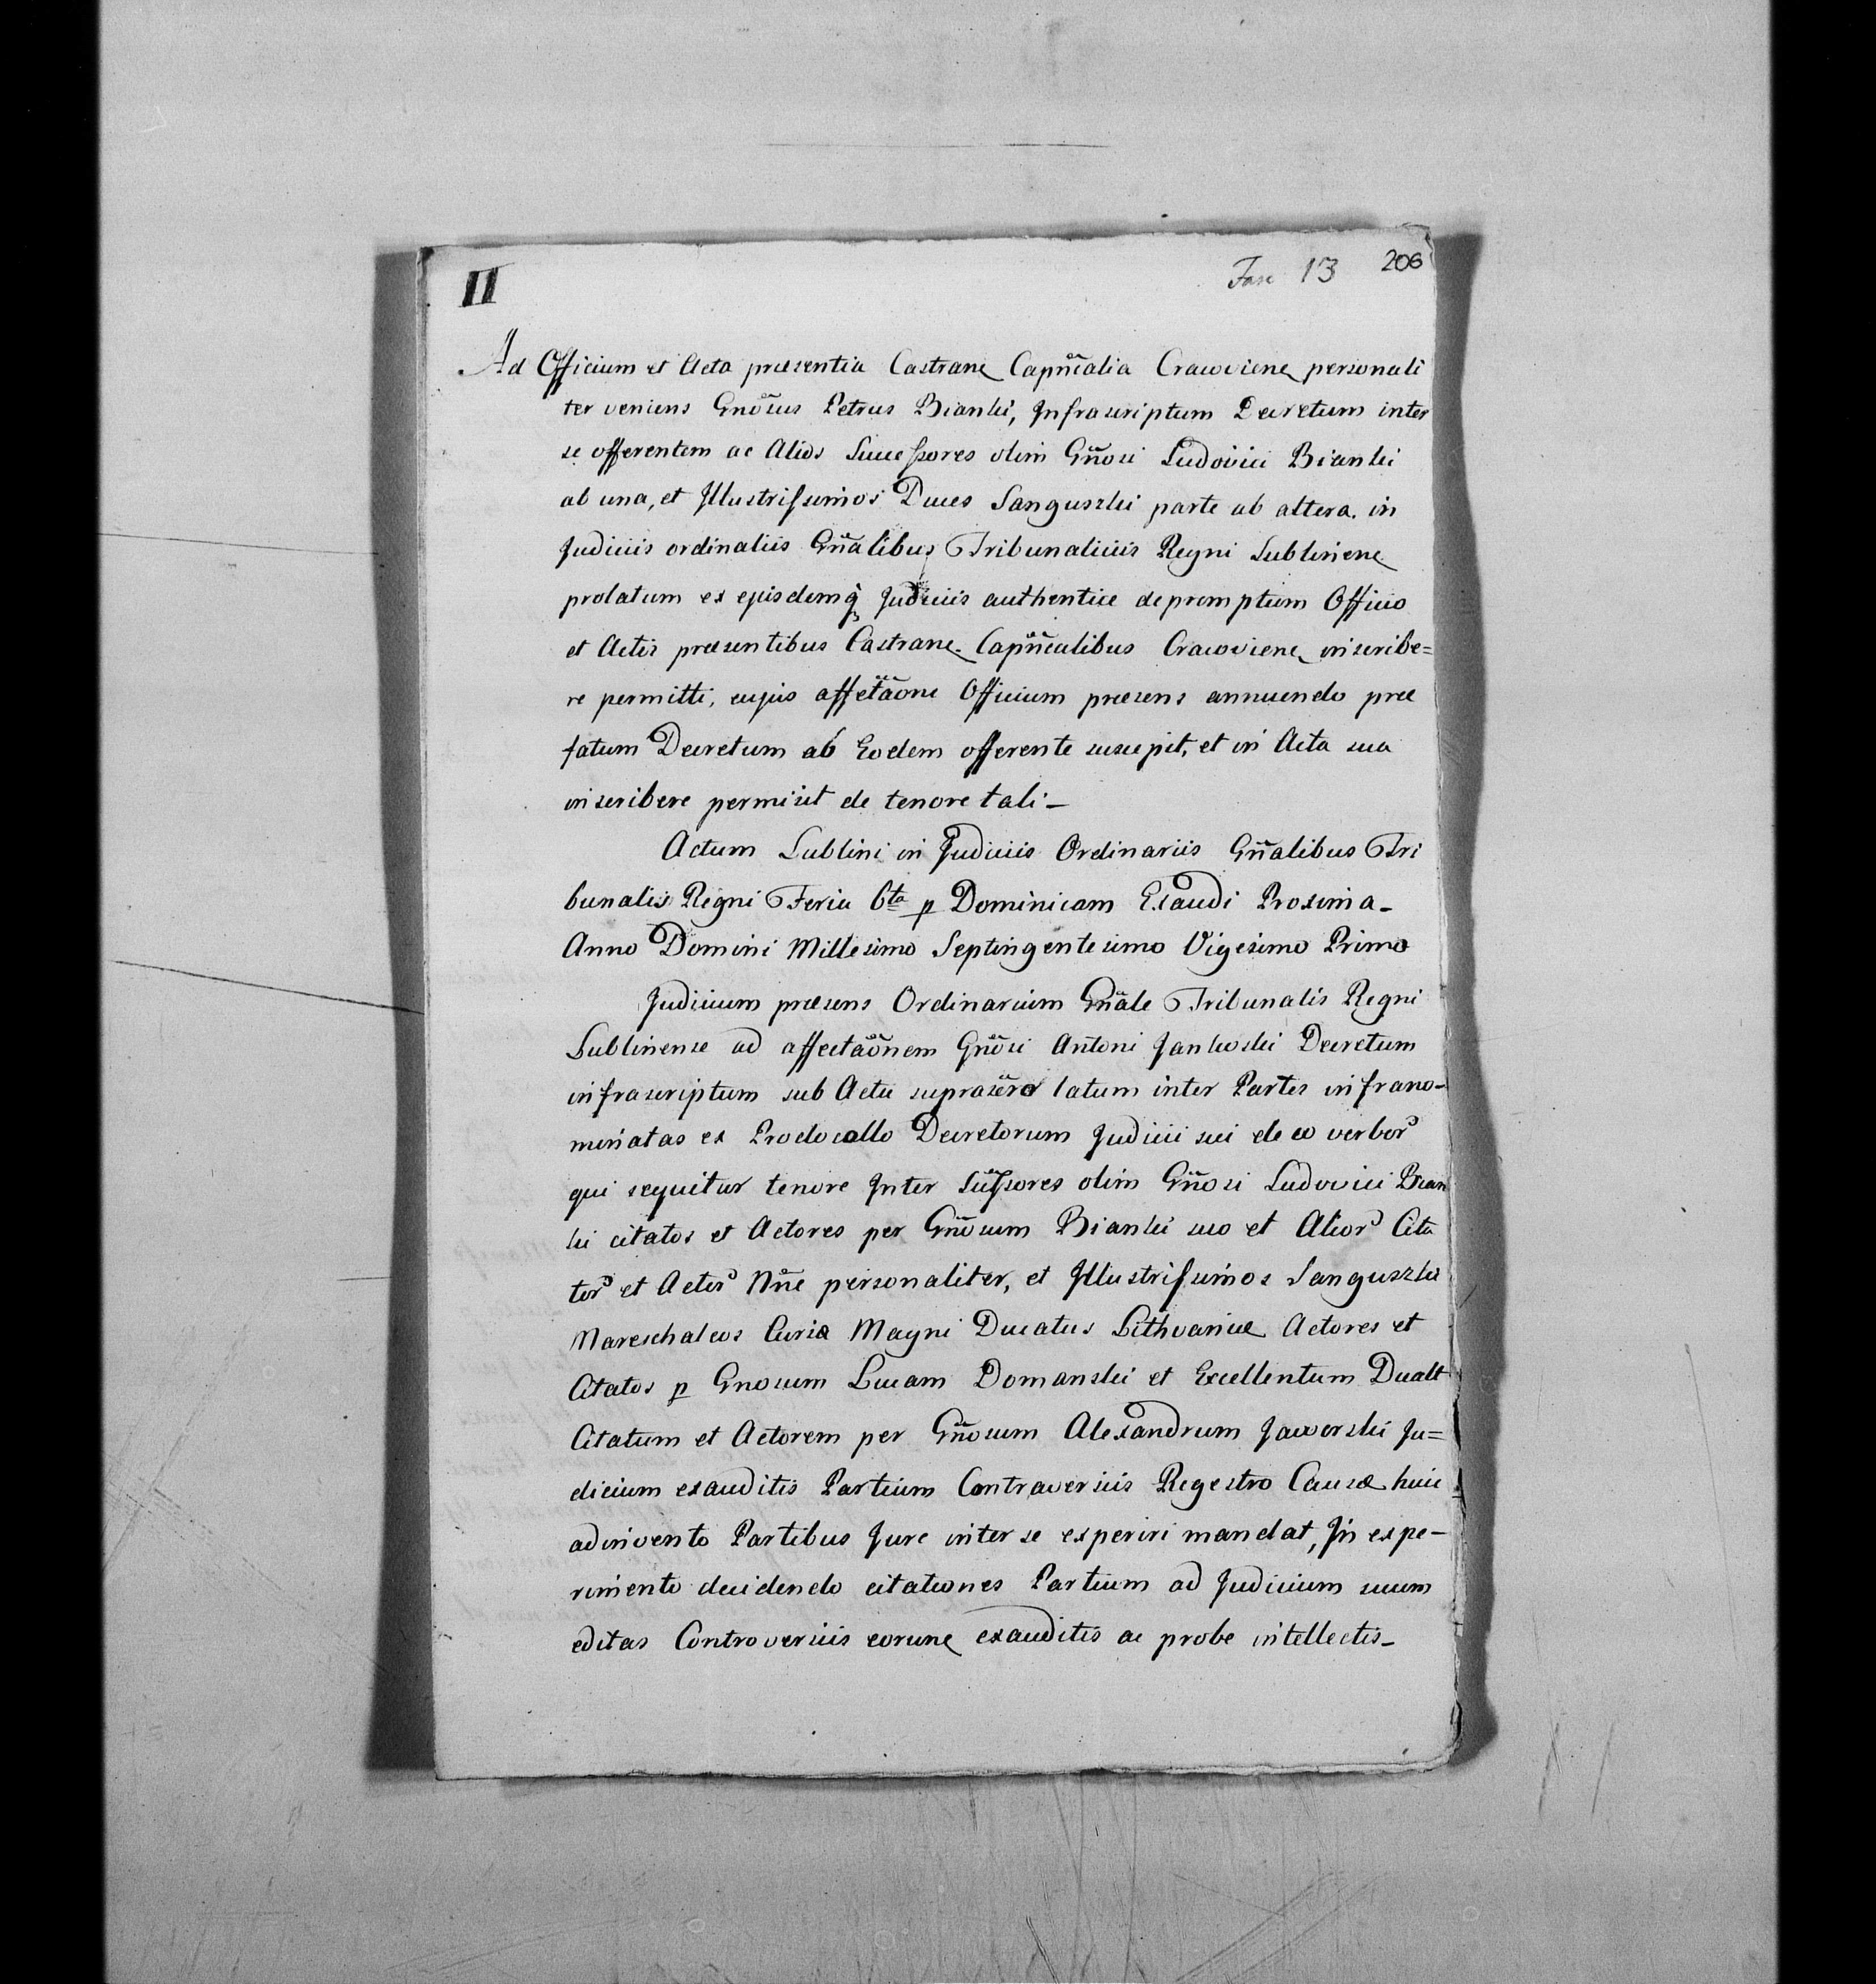 II
Fasc 13 206
Ad Officium et Acta præsentia Castrane Capnẽalia Cracoviene personali
ter veniens Gnõsus Petrus Bianki, Infrascriptum Decretum inter
se offerentem ac Alios Successores olim Gnõsi Ludovici Bianki
ab una, et Illustrissimos Duces Sanguszki parte ab altera. in
Judiciis ordinaliis Gnãlibus Tribunalicis Regni Lubliniene
prolatum ex ejusdemq̃ Judiciis authentice depromptum Officio
et Actis præsentibus Castrane Capnẽalibus Cracoviene inscribe=
re permitti, cujus affetãone Officium præsens annuendo præ
fatum Decretum ab Eodem offerente suscepit, et in Acta sua
inscribere permisit de tenore tali –
Actum Lublini in Judiciis Ordinariis Gnãlibus Tri
bunalis Regni Feria 6ta p Dominicam Exaudi Proxima –
Anno Domini Millesimo Septingentesimo Vigesimo Primo
Judicium præsens Ordinarium Gnãle Tribunalis Regni
Lublinense ad affectaõnem Gnõsi Antoni Jankoski Decretum
infrascriptum sub Actu supra latum inter Partes infrano-
minatas ex Prodocollo Decretorum Judicii sui de eo verbor
qui sequitur tenore Inter Suc̃ssores olim Gnõsi Ludovici Bian
ki citatos et Actores per Gnõsum Bianki suo et Alior Cita
tor et Actor Nñe personaliter, et Illustrissimos Sanguszki
Mareschalcos Curiæ Magni Ducatus Lithvaniæ Actores et
Citatos p Gnosum Lucam Domanski et Excellentum Dualt
Citatum et Actorem per Gnõsum Alexandrum Jaworski Ju=
dicium exauditis Partium Contraversiis Regestro Causæ huic
adinvento Partibus Jure inter se experiri mandat, In expe-
rimento decidendo citationes Partium ad Judicium suum
editas Controversiis eorune exauditis ac probe intellectis –